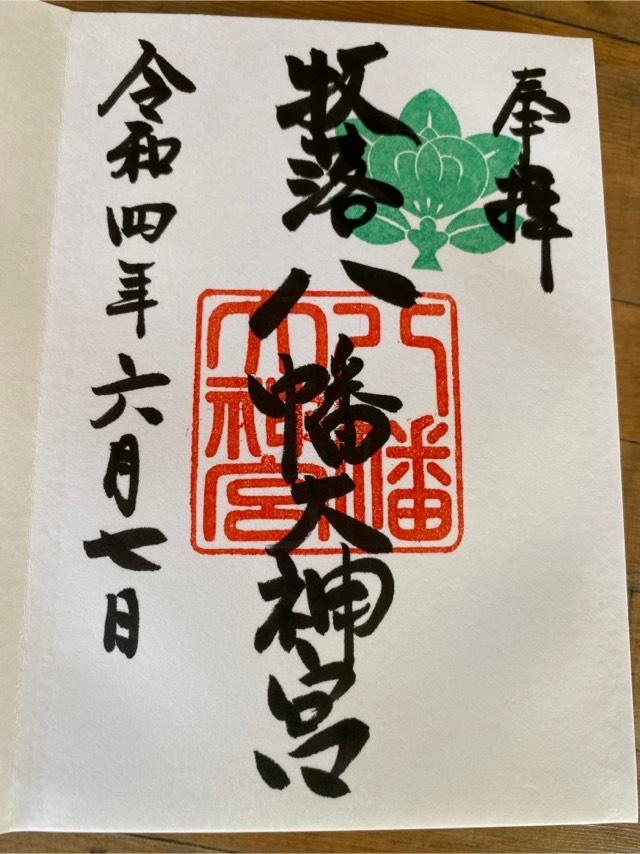 奉拝
牧落八幡大神宮
八幡大神宮
令和四年六月七日